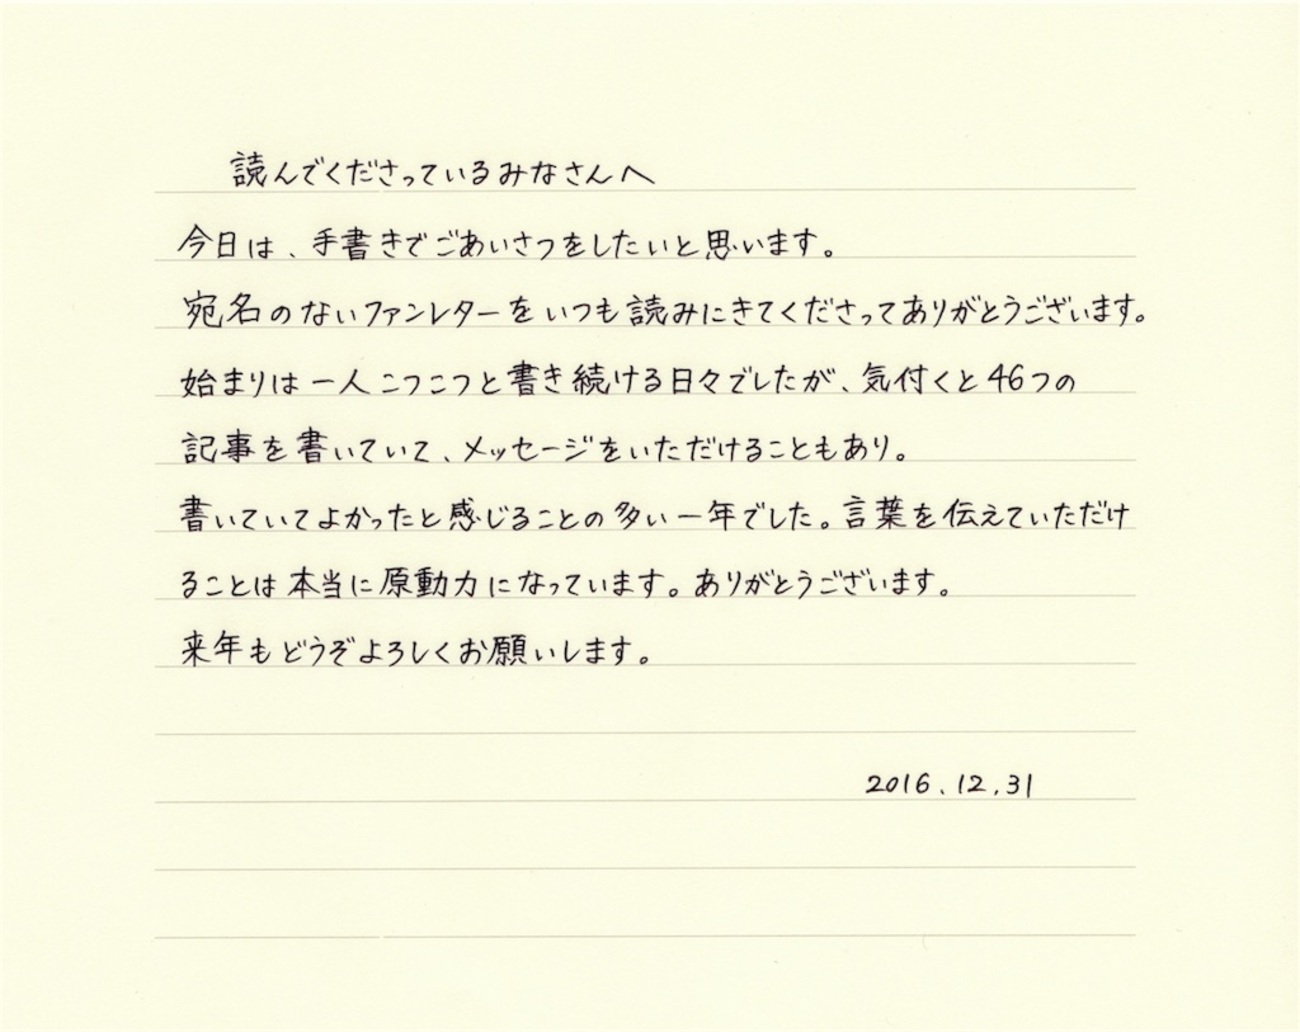 読んでくださっているみなさんへ
今日は、手書きでごあいさつをしたいと思います。
宛名のないファンレターをいつも読みにきてくださってありがとうございます。
始まりは一人こつこつと書き続ける日々でしたが、気付くと46つの
記事を書いていて、メッセージをいただけることもあり。
書いていてよかったと感じることの多い一年でした。言葉を伝えていただけ
ることは本当に原動力になっています。ありがとうございます。
来年もどうぞよろしくお願いします。
2016.12.31